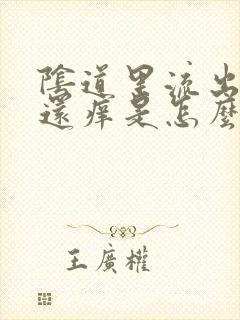 陰道里流出
還癢是怎麼
王廣權